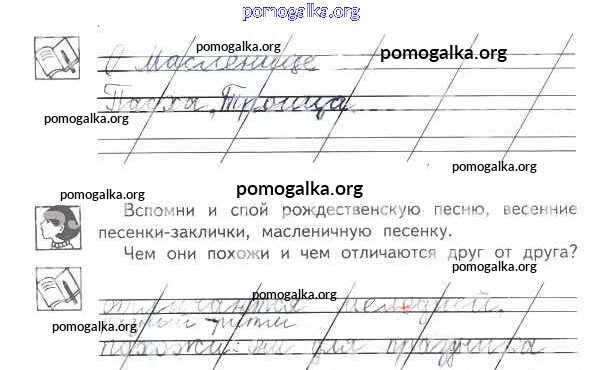 pomogalka.org
pomogalka.org
pomogalka.org
О Масленице
Пасха, Троица
pomogalka.org
pomogalka.org
pomogalka.org
pomogalka.org
Вспомни и спой рождественскую песню, весенние
песенки-заклички, масленичную песенку.
Чем они похожи и чем отличаются друг от друга?
pomogalka.org
отличаются мелодией,
ритм
pomogalka.org
похожи: для праздника
pomogalka.org